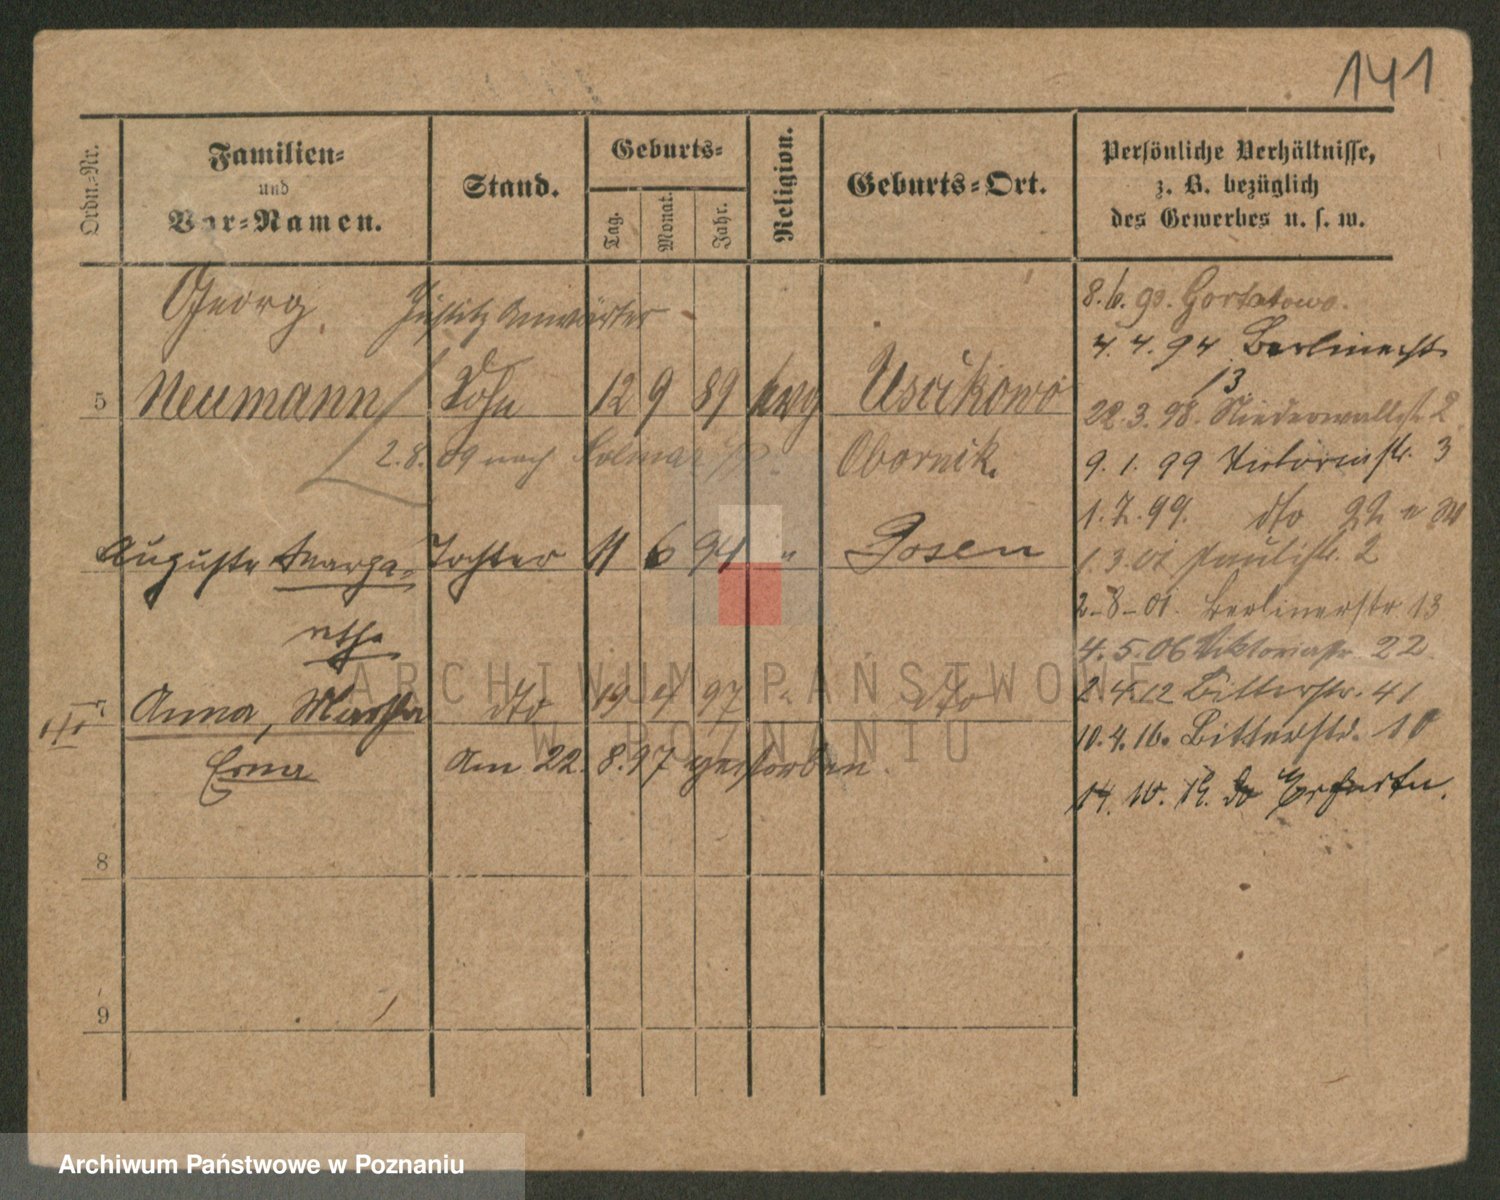 141
Ordn.-Nr.
Familien-
und
Vor-Namen.
Stand.
Geburts-
Tag.
Monat.
Jahr.
Religion.
Geburts-Ort.
Persönliche Verhältnisse,
z. B. bezüglich
des Gewerbes u. s. w.
Georg, Justiz Anwärter
5 Neumann Sohn 12 9 89 evg Uscikowo
2.8.09 nach Kolmar Obornik.
Auguste Marga- Tochter 11 6 94 " Posen
rethe
Anna, Martha dto 19 4 97 " dto
Erna Am 22. 8.97 gestorben.
8
9
8.6.93. Gortatowo.
4.4.94 Berlinerstr
13
22.3.98. Niederwallstr. 2
9.1.99 Victoriastr. 3
1.7.99. dto 22
1.3.01 Paulistr. 2
2-8-01. Berlinerstr 13
4.5.06 Viktoriastr. 22
2.4.12 Bitterstr. 41
10.4.16. Bitterstr. 10
14. 10. 19. Erfurt
ARCHIWUM PAŃSTWOWE
W POZNANIU
Archiwum Państwowe w Poznaniu